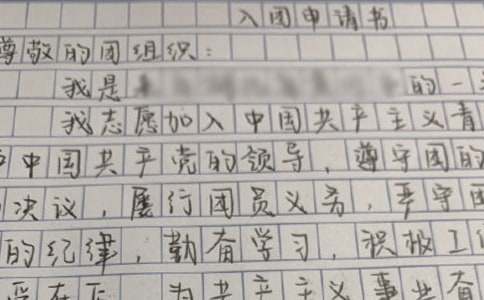 入团申请书
尊敬的团组织:
我是 的一
我志愿加入中国共产主义青
中国共产党的领导,遵守团的
决议,履行团员义务,严守团
的纪律,勤奋学习,积极工
为共产主义事业奋